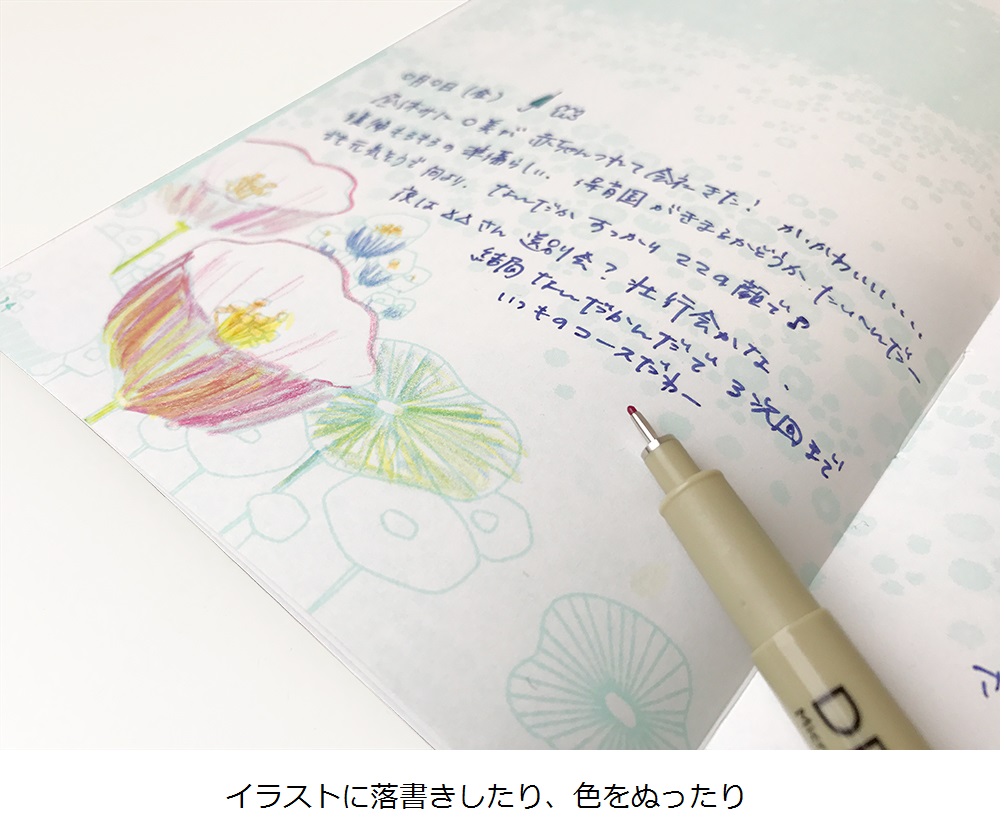 0月0日(金)
昼休みに〇美が赤ちゃんつれて会社きた! かわかわいいい、、、
復帰そろそろの準備らしい、保育園がきまるかどうか、たいへんだー
元気そうで何より。なんだかすっかりママの顔で
夜は××さん送別会?壮行会かな、
結局なんだかんだで3次回まで
いつものコースだわー
た
DR
Micr
イラストに落書きしたり、色をぬったり